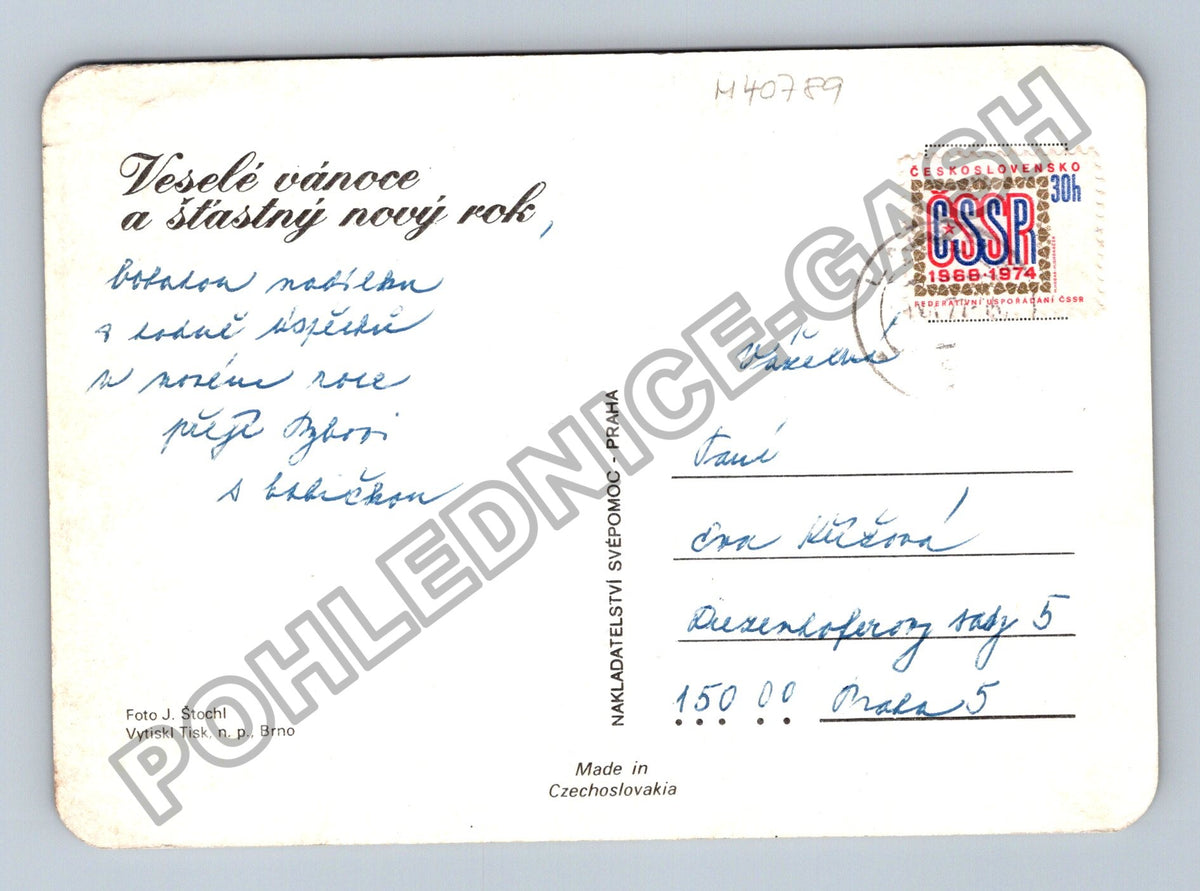 M40789
Veselé vánoce
a šťastný nový rok,
bohatou nadílku
a hodně úspěchů
v novém roce
přejí
s babičkou
ČESKOSLOVENSKO
30h
ČSSR
1968-1974
FEDERATIVNÍ USPOŘÁDÁNÍ ČSSR
Vážená
Paní
Eva Křížová
Diezenhoferovy sady 5
150 00 Praha 5
NAKLADATELSTVÍ SVÉPOMOC - PRAHA
Foto J. Štochl
Vytiskl Tisk, n. p., Brno
Made in
Czechoslovakia
POHLEDNICE-GASH